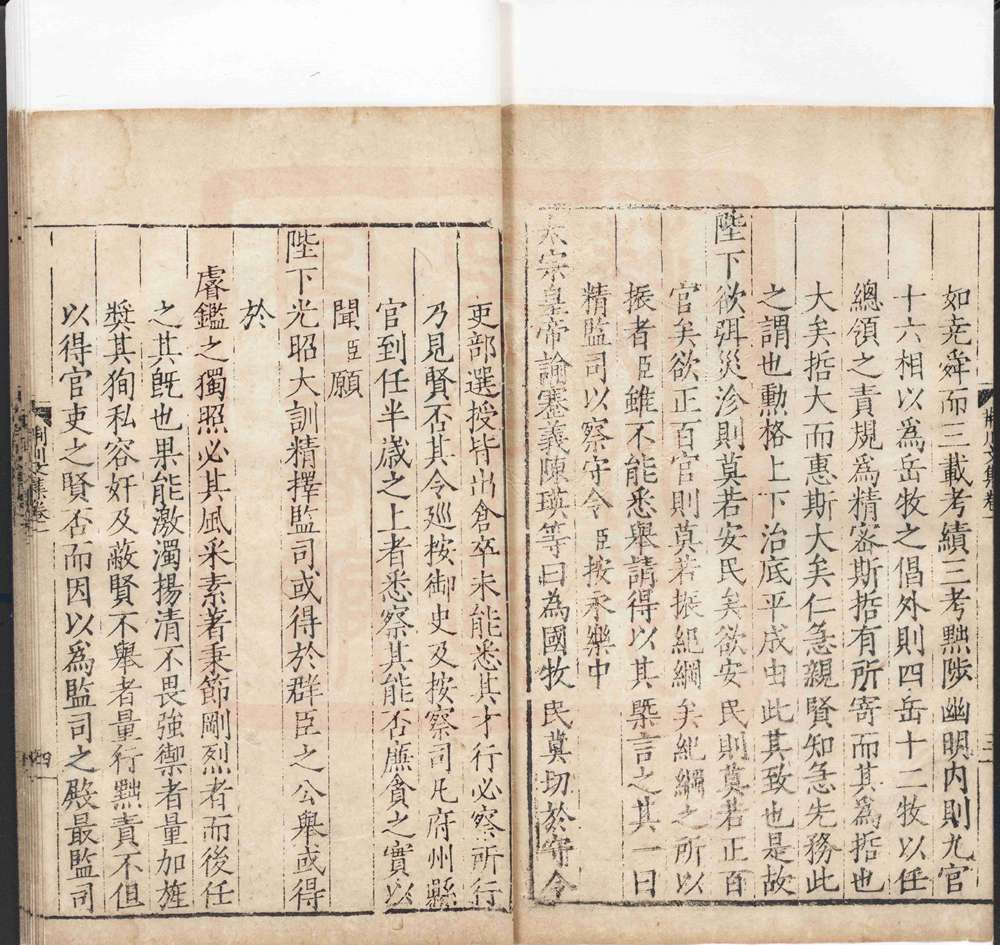 如堯舜而三載考績三考黜陟幽明內則九官
十六相以為岳牧之倡外則四岳十二牧以任
總領之責規為精密斯哲有所寄而其為哲也
大矣哲大而惠斯大矣仁急親賢知急先務此
之謂也勲格上下治底平成由此其致也是故
陛下欲弭災沴則莫若安民矣欲安民則莫若正百
官矣欲正百官則莫若振紀綱矣紀綱之所以
振者臣雖不能悉舉請得以其槩言之其一曰
精監司以察守令臣按永樂中
太宗皇帝諭蹇義陳瑛等曰為國牧民莫切於守令
吏部選授皆出倉卒未能悉其才行必察所行
乃見賢否其令廵按御史及按察司凡府州縣
官到任半歲之上者悉察其能否廉貪之實以
聞臣願
陛下光昭大訓精擇監司或得於群臣之公舉或得
於
睿鑑之獨照必其風采素著秉節剛烈者而後任
之其既也果能激濁揚清不畏強禦者量加旌
奬其狥私容奸及蔽賢不舉者量行黜責不但
以得官吏之賢否而因以為監司之殿最監司
荆川文集卷一
四